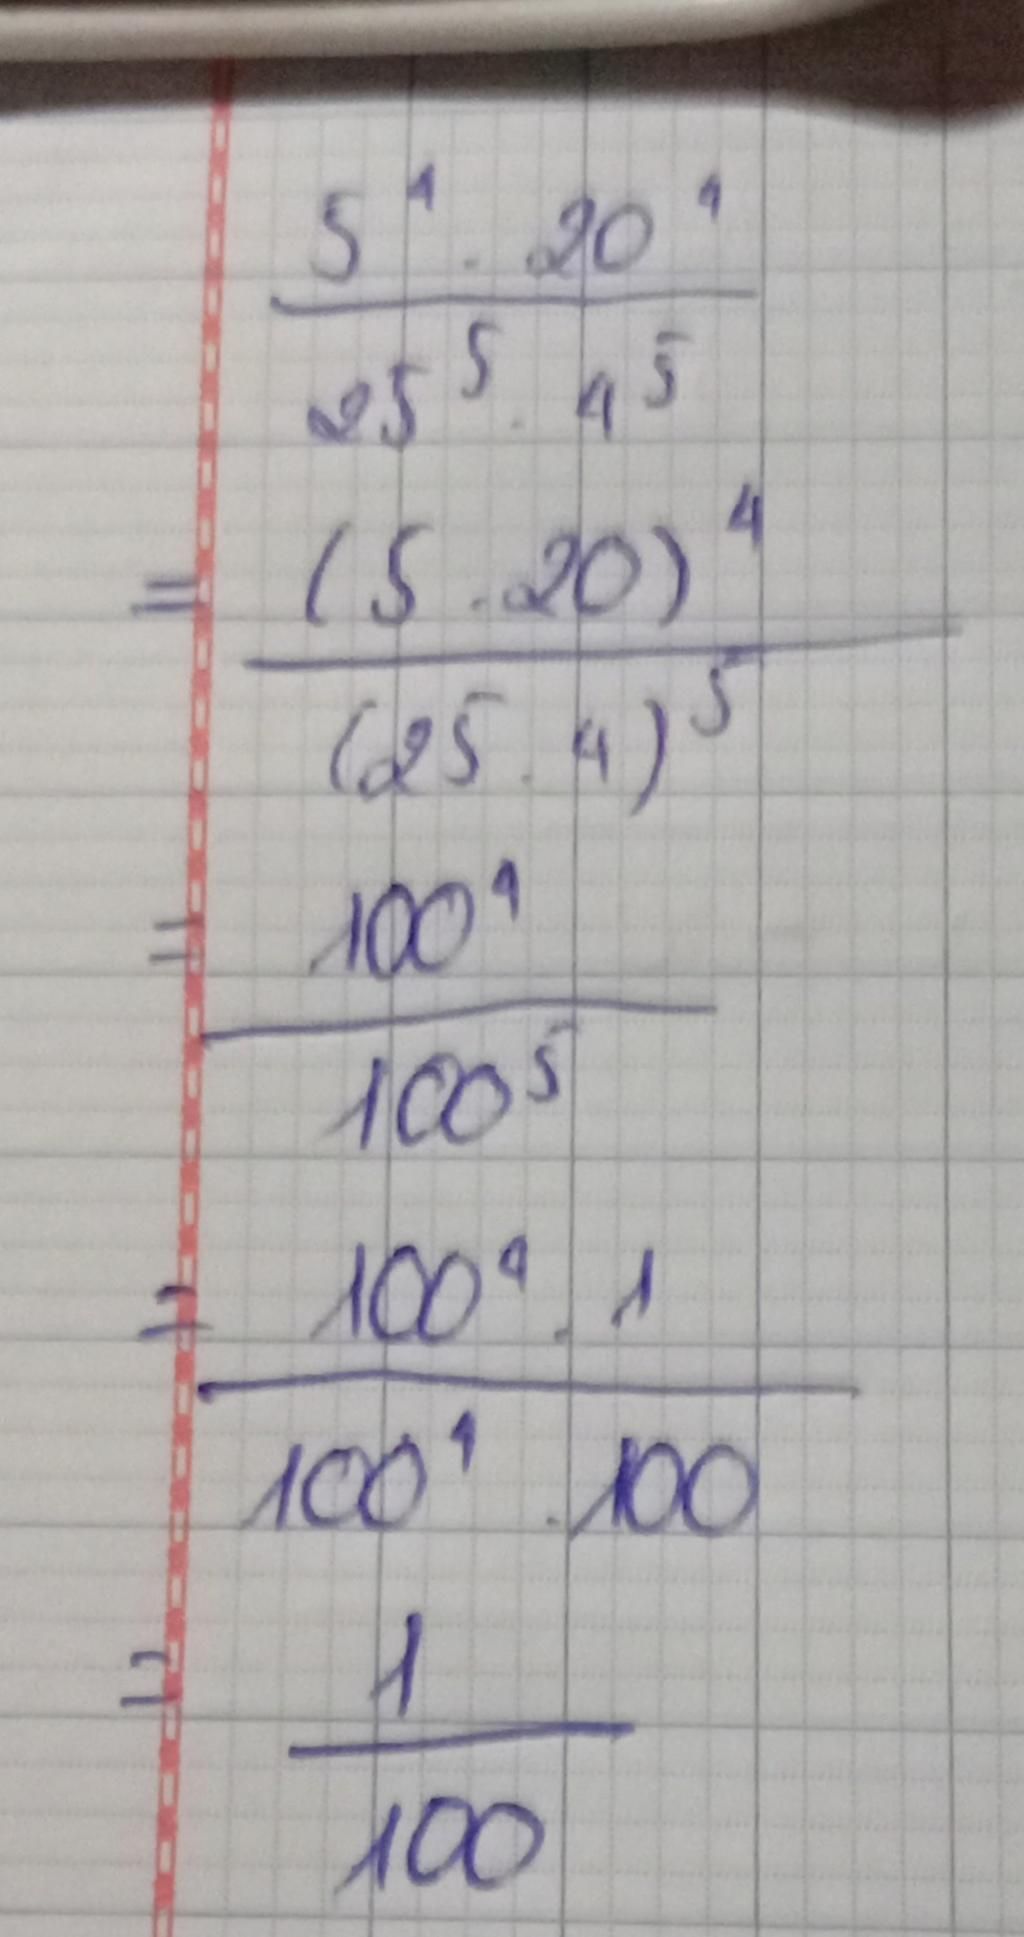 5⁴ . 20⁴
25⁵ . 4⁵
= (5 . 20)⁴
(25 . 4)⁵
= 100⁴
100⁵
= 100⁴ . 1
100⁴ . 100
= 1
100